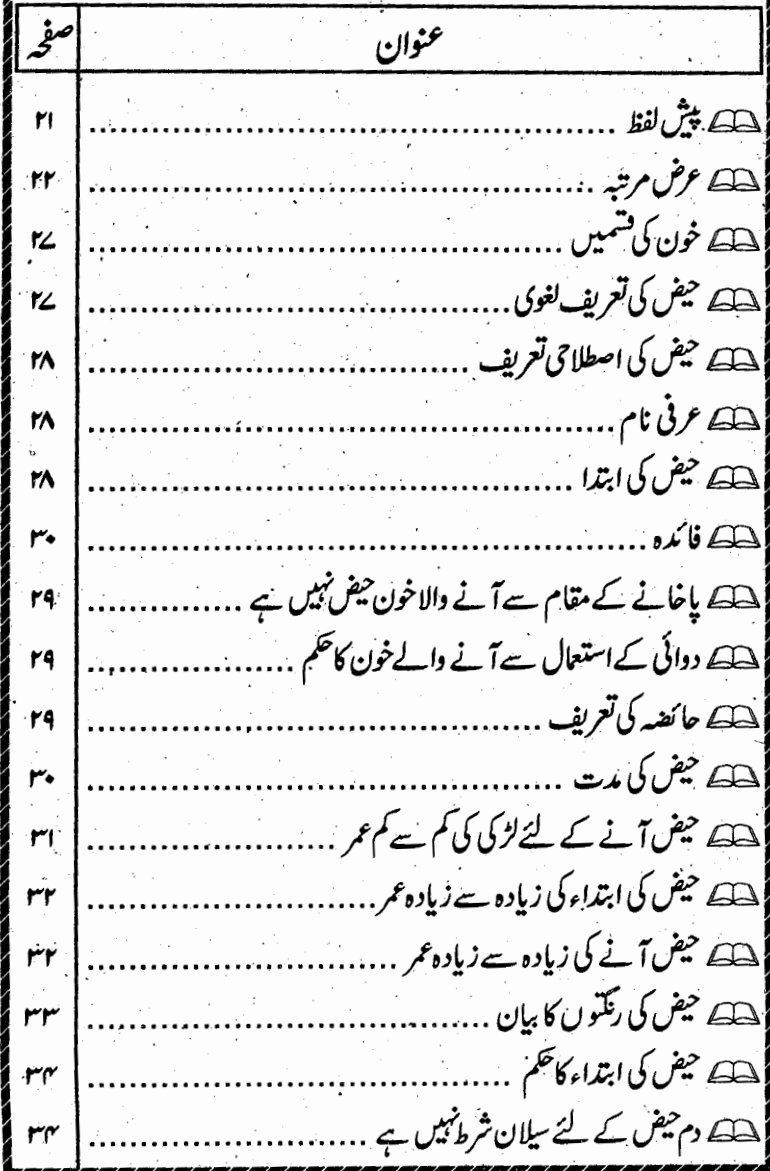 عنوان صفحہ
پیش لفظ ............ ۲۱
عرض مرتبہ ............ ۲۲
خون کی قسمیں ............ ۲۷
حیض کی تعریف لغوی ............ ۲۷
حیض کی اصطلاحی تعریف ............ ۲۸
عرفی نام ............ ۲۸
حیض کی ابتدا ............ ۲۸
فائدہ ............ ۳۰
پاخانے کے مقام سے آنے والا خون حیض نہیں ہے ............ ۲۹
دوائی کے استعمال سے آنے والے خون کا حکم ............ ۲۹
حائضہ کی تعریف ............ ۲۹
حیض کی مدت ............ ۳۰
حیض آنے کے لئے لڑکی کی کم سے کم عمر ............ ۳۱
حیض کی ابتداء کی زیادہ سے زیادہ عمر ............ ۳۲
حیض آنے کی زیادہ سے زیادہ عمر ............ ۳۲
حیض کی رنگتوں کا بیان ............ ۳۳
حیض کی ابتداء کا حکم ............ ۳۴
دم حیض کے لئے سیلان شرط نہیں ہے ............ ۳۴